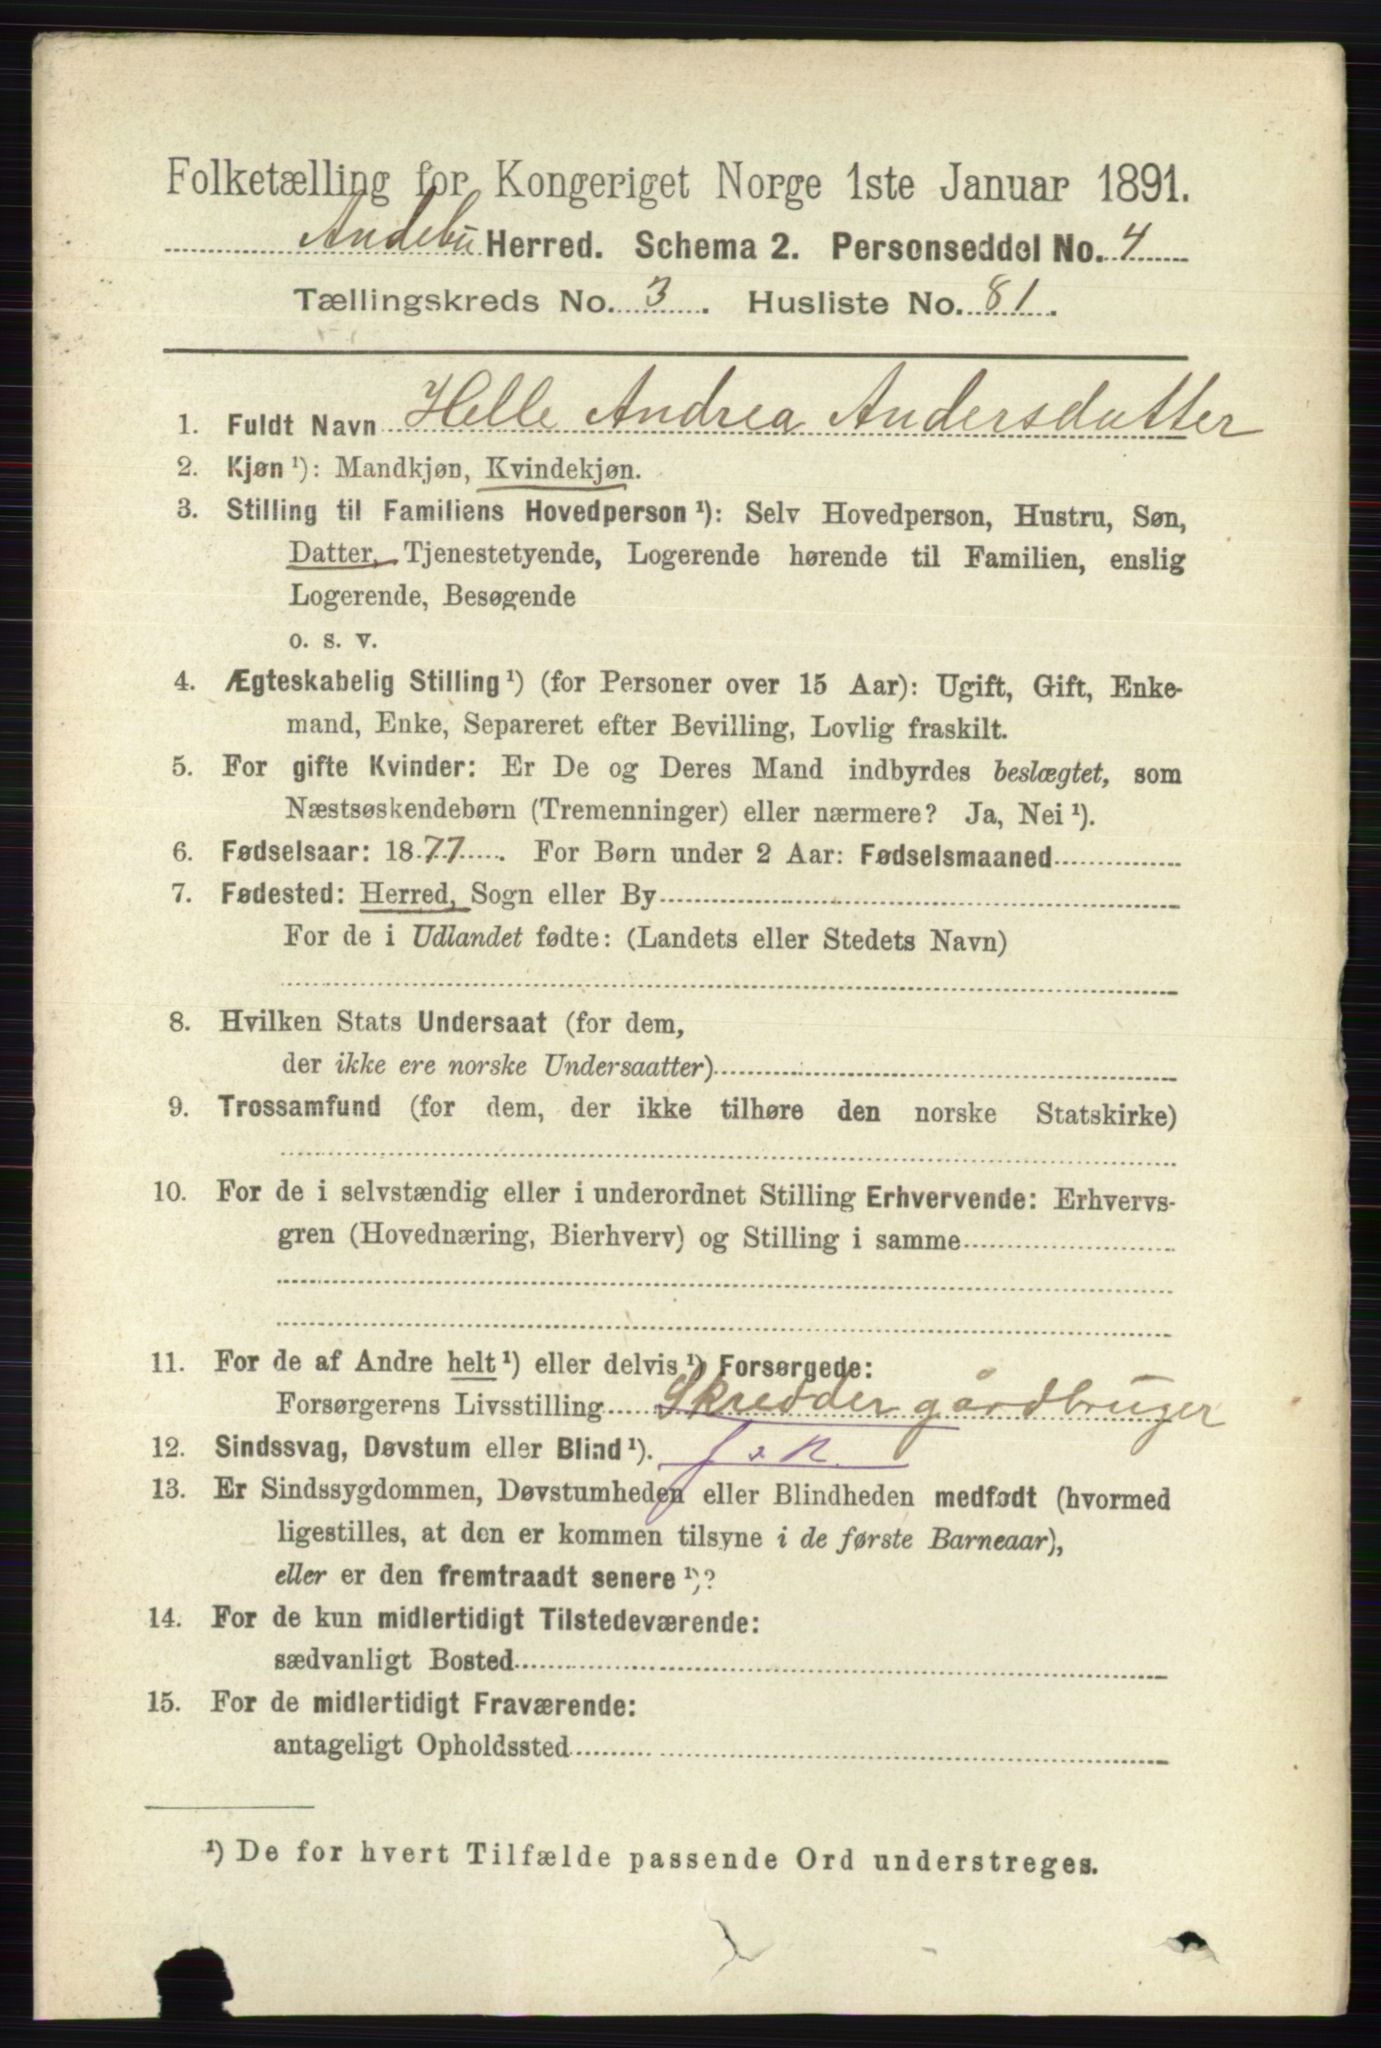 Folketælling for Kongeriget Norge 1ste Januar 1891.
Andebu Herred. Schema 2. Personseddel No. 4
Tællingskreds No. 3. Husliste No. 81.
1. Fuldt Navn Helle Andrea Andersdatter
2. Kjøn ¹): Mandkjøn, Kvindekjøn.
3. Stilling til Familiens Hovedperson ¹): Selv Hovedperson, Hustru, Søn,
Datter, Tjenestetyende, Logerende hørende til Familien, enslig
Logerende, Besøgende
o. s. v.
4. Ægteskabelig Stilling ¹) (for Personer over 15 Aar): Ugift, Gift, Enke-
mand, Enke, Separeret efter Bevilling, Lovlig fraskilt.
5. For gifte Kvinder: Er De og Deres Mand indbyrdes beslægtet, som
Næstsøskendebørn (Tremenninger) eller nærmere? Ja, Nei ¹).
6. Fødselsaar: 1877. For Børn under 2 Aar: Fødselsmaaned
7. Fødested: Herred, Sogn eller By
For de i Udlandet fødte: (Landets eller Stedets Navn)
8. Hvilken Stats Undersaat (for dem,
der ikke ere norske Undersaatter)
9. Trossamfund (for dem, der ikke tilhøre den norske Statskirke)
10. For de i selvstændig eller i underordnet Stilling Erhvervende: Erhvervs-
gren (Hovednæring, Bierhverv) og Stilling i samme
11. For de af Andre helt ¹) eller delvis ¹) Forsørgede:
Forsørgerens Livsstilling Skredder gårdbruger
12. Sindssvag, Døvstum eller Blind ¹).
13. Er Sindssygdommen, Døvstumheden eller Blindheden medfødt (hvormed
ligestilles, at den er kommen tilsyne i de første Barneaar),
eller er den fremtraadt senere ¹)?
14. For de kun midlertidigt Tilstedeværende:
sædvanligt Bosted
15. For de midlertidigt Fraværende:
antageligt Opholdssted
¹) De for hvert Tilfælde passende Ord understreges.